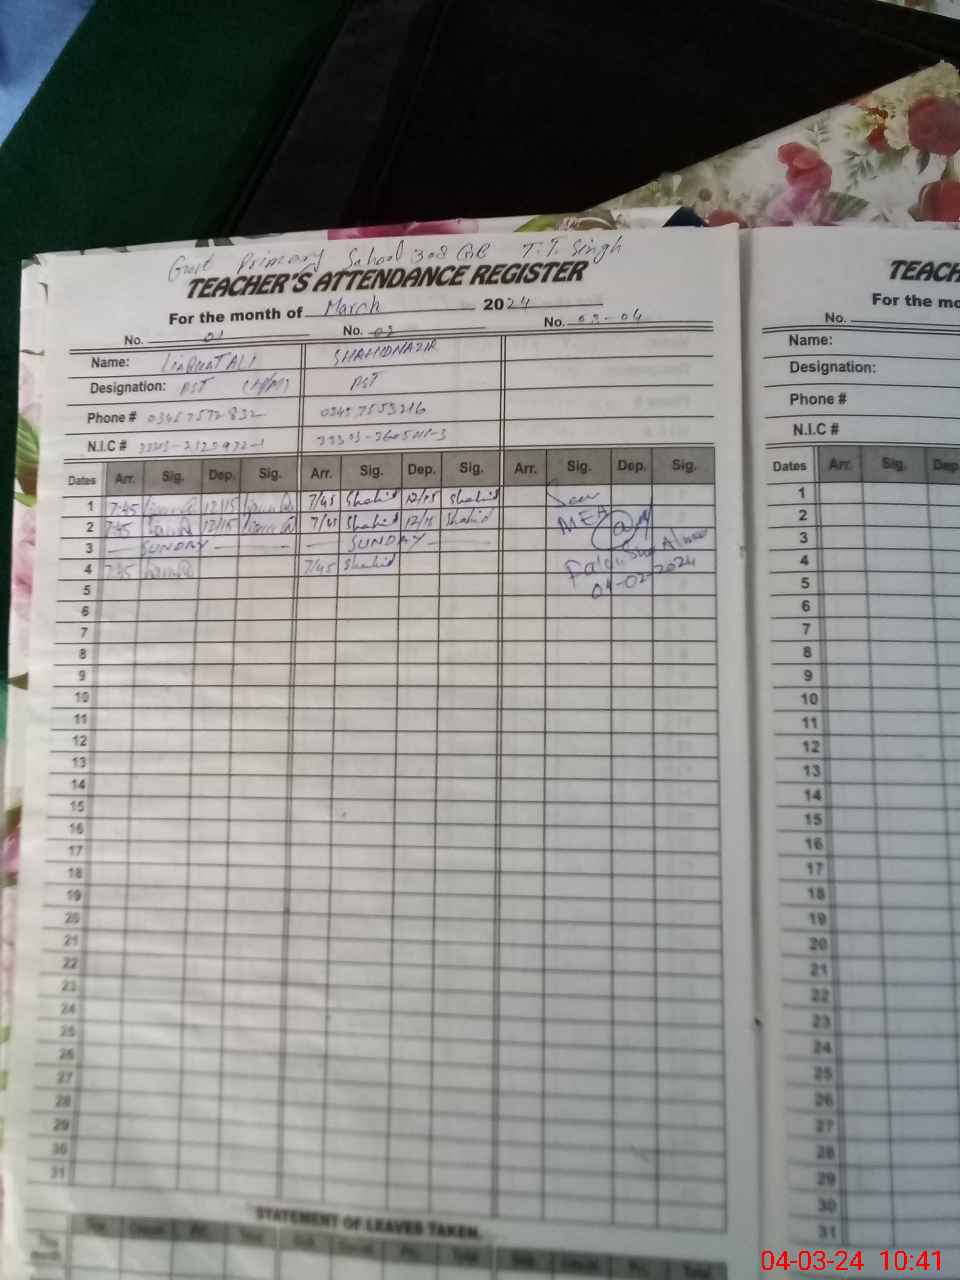 Govt Primary School 308 GB T.T. Singh
TEACHER'S ATTENDANCE REGISTER
For the month of March 2024
No. 01 No. 02 No. 03-04
Name: LiaquatALI SHAHIDNAZIR
Designation: PST PST
Phone # 03457572832 03457553216
N.I.C #
Dates Arr. Sig. Dep. Sig. Arr. Sig. Dep. Sig. Arr. Sig. Dep. Sig.
1 7:45 12/15 7/45 Shahid 12/15 Shahid Seen
2 7:45 12/15 7/45 Shahid 12/15 Shahid MEA
3 SUNDAY SUNDAY
4 7:45 7/45 Shahid
04-02-2024
5
6
7
8
9
10
11
12
13
14
15
16
17
18
19
20
21
22
23
24
25
26
27
28
29
30
31
STATEMENT OF LEAVES TAKEN
TEACH
For the mo
No.
Name:
Designation:
Phone #
N.I.C #
Dates Arr. Sig. Dep
1
2
3
4
5
6
7
8
9
10
11
12
13
14
15
16
17
18
19
20
21
22
23
24
25
26
27
28
29
30
31
04-03-24 10:41